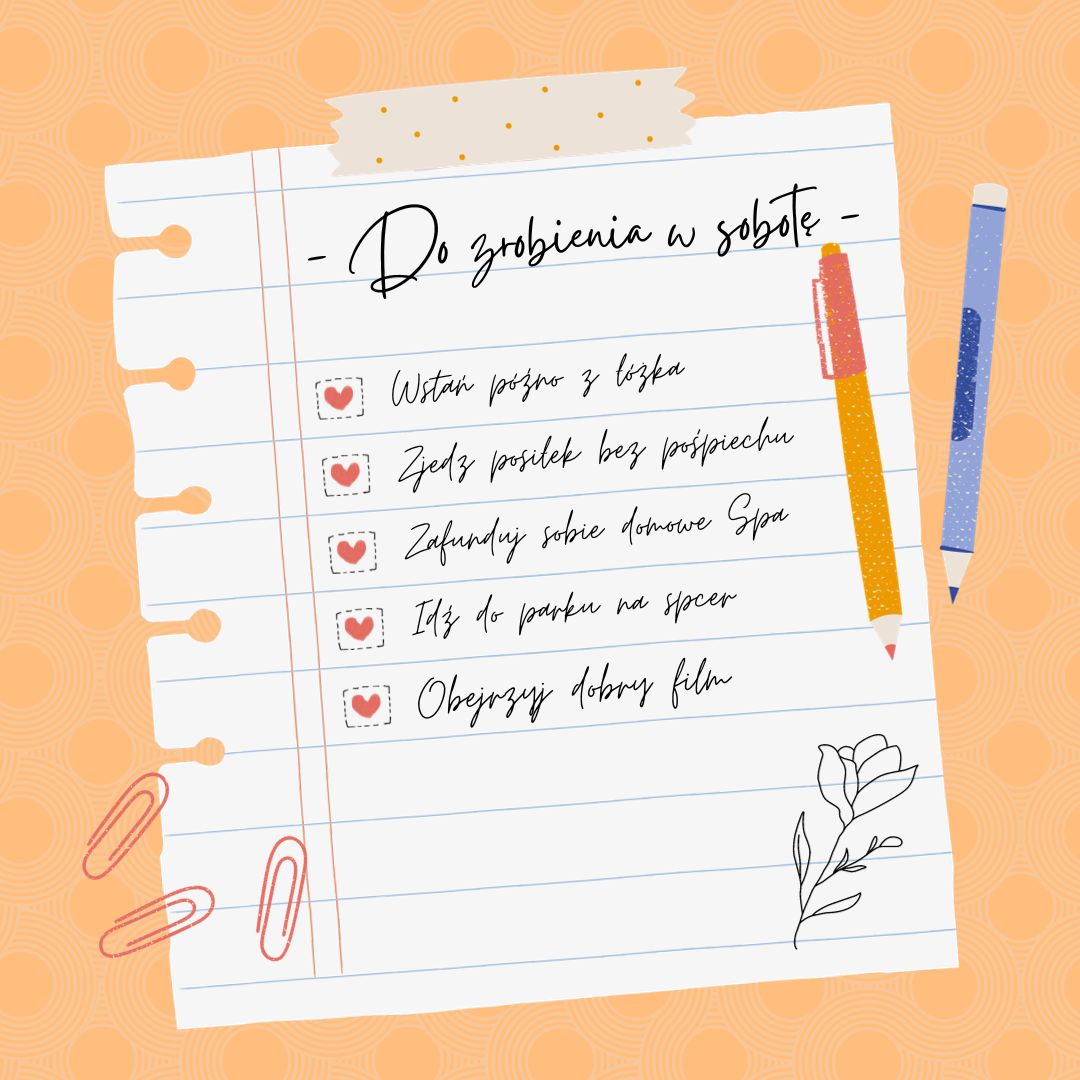 - Do zrobienia w sobotę -
Wstań późno z łóżka
Zjedz posiłek bez pośpiechu
Zafunduj sobie domowe Spa
Idź do parku na spcer
Obejrzyj dobry film